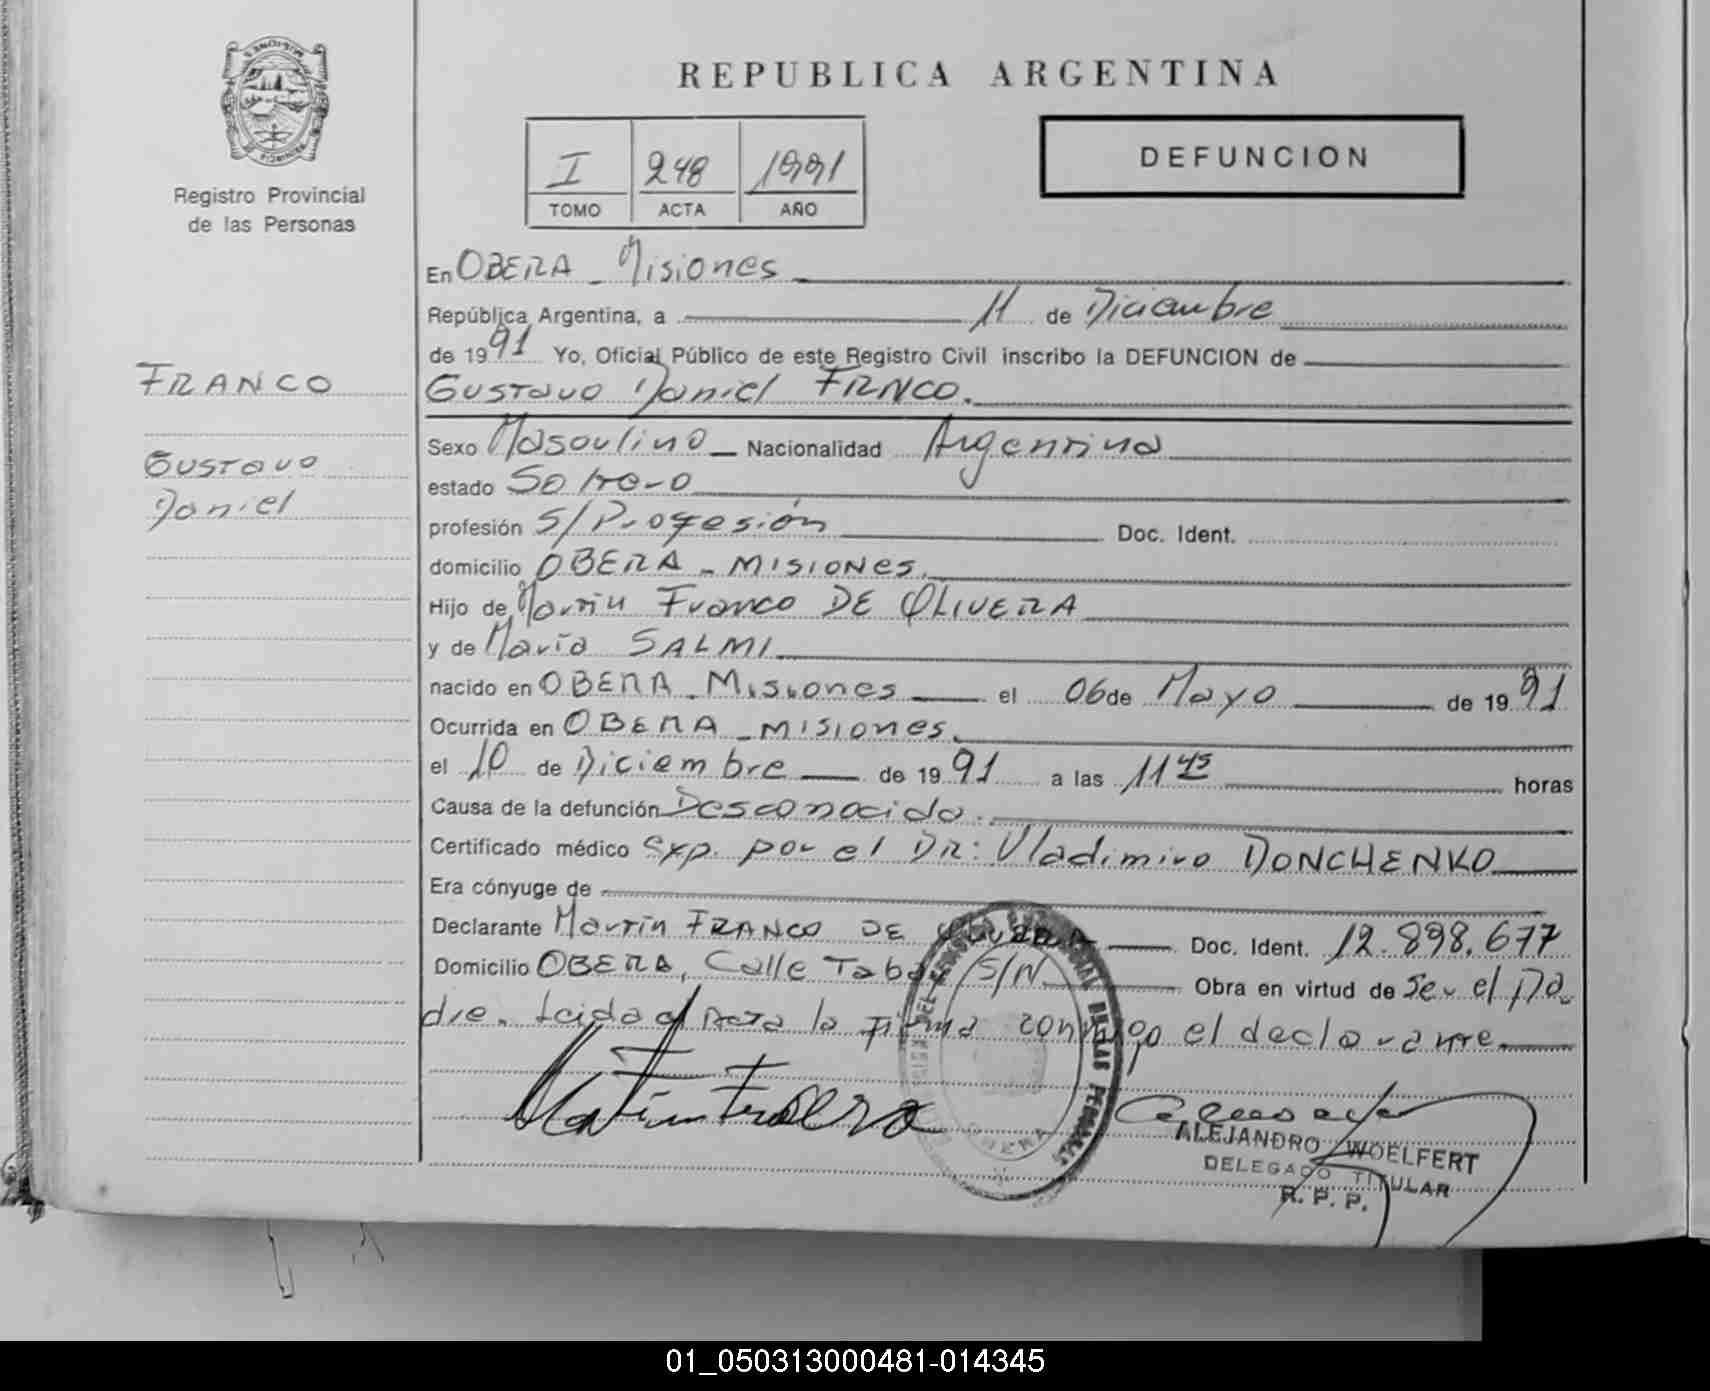 MISIONES
PROVINCIA
Registro Provincial
de las Personas
REPUBLICA ARGENTINA
I 248 1991
TOMO ACTA AÑO
DEFUNCION
En OBERA - Misiones
República Argentina, a 11 de Diciembre
de 1991 Yo, Oficial Público de este Registro Civil inscribo la DEFUNCION de
FRANCO
Gustavo Daniel FRNCO.
Gustavo
Daniel
Sexo Masculino Nacionalidad Argentina
estado Soltero
profesión S/Profesión Doc. Ident.
domicilio OBERA - MISIONES.
Hijo de Martin Franco DE OLIVERA
y de María SALMI
nacido en OBERA - Misiones el 06 de Mayo de 1991
Ocurrida en OBERA - MISIONES.
el 10 de Diciembre de 1991 a las 11 45 horas
Causa de la defunción Desconocida.
Certificado médico exp. por el DR: Vladimiro DONCHENKO
Era cónyuge de
Declarante Martin FRANCO DE Doc. Ident. 12.898.677
Domicilio OBERA, Calle S/N Obra en virtud de Ser el Pa
dre. Leida el Acta la firma conmigo el declarante
OBERA
ALEJANDRO WOELFERT
DELEGADO TITULAR
R. P. P.
01_050313000481-014345